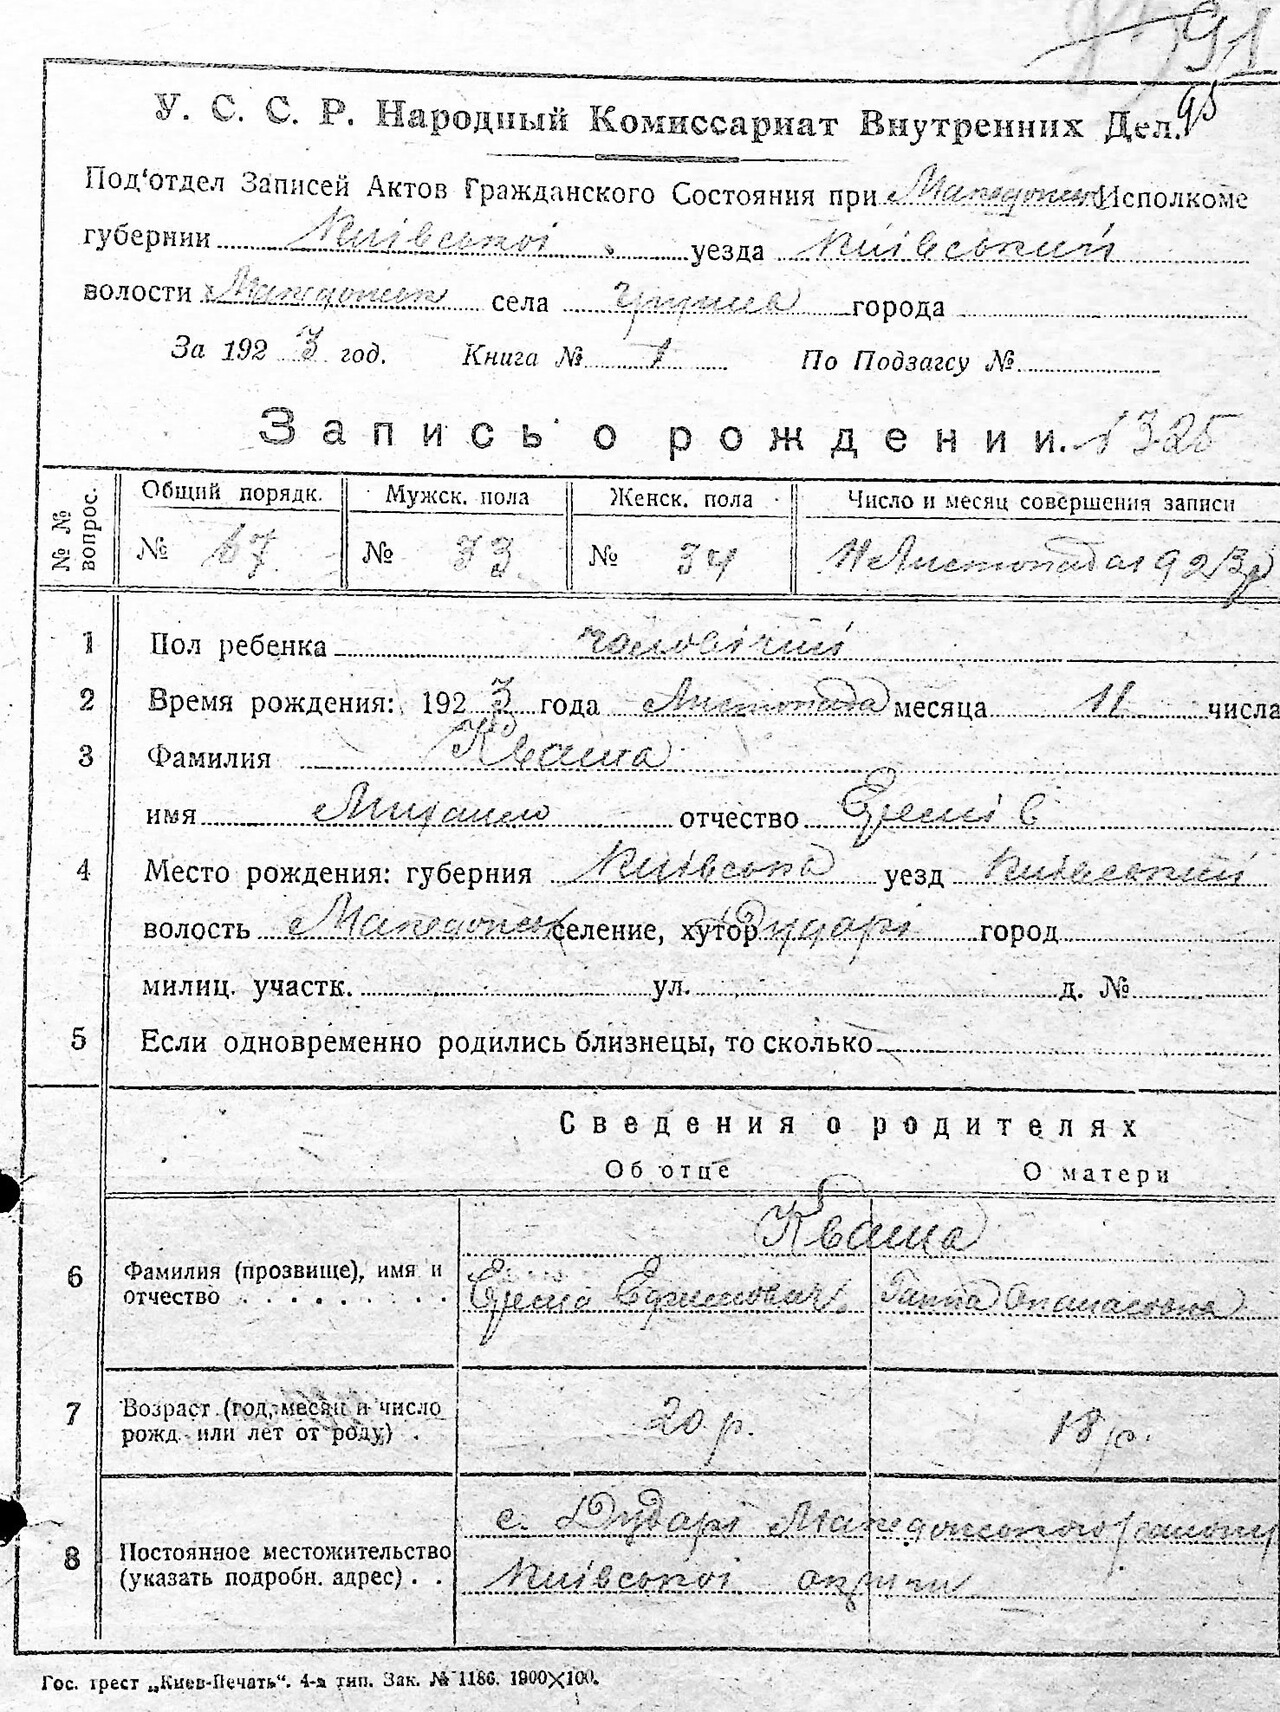 91
95
У. С. С. Р. Народный Комиссариат Внутренних Дел.
Под‘отдел Записей Актов Гражданского Состояния при Македонск Исполкоме
губернии Київської уезда Київський
волости Македонск села города
За 1923 год. Книга № 1 По Подзагсу №
Запись о рождении. 1325
№ № вопрос. Общий порядк. Мужск. пола Женск. пола Число и месяц совершения записи
№ 67 № 33 № 34 11 Листопада 1923 р
1 Пол ребенка чоловічий
2 Время рождения: 1923 года Листопада месяца 11 числа
3 Фамилия Кваша
имя Михайло отчество
4 Место рождения: губерния Київська уезд Київський
волость Македонск селение, хутор Дударі город
милиц. участк. ул. д. №
5 Если одновременно родились близнецы, то сколько
Сведения о родителях
Об отце О матери
Кваша
6 Фамилия (прозвище), имя и
отчество Ганна Опанасовна
7 Возраст (год, месяц и число
рожд. или лет от роду) 20 р. 18 р.
с. Дударі Македонського району
8 Постоянное местожительство
(указать подробн. адрес) Київської округи
Гос. трест „Киев-Печать“. 4-я тип. Зак. № 1186. 1900×100.